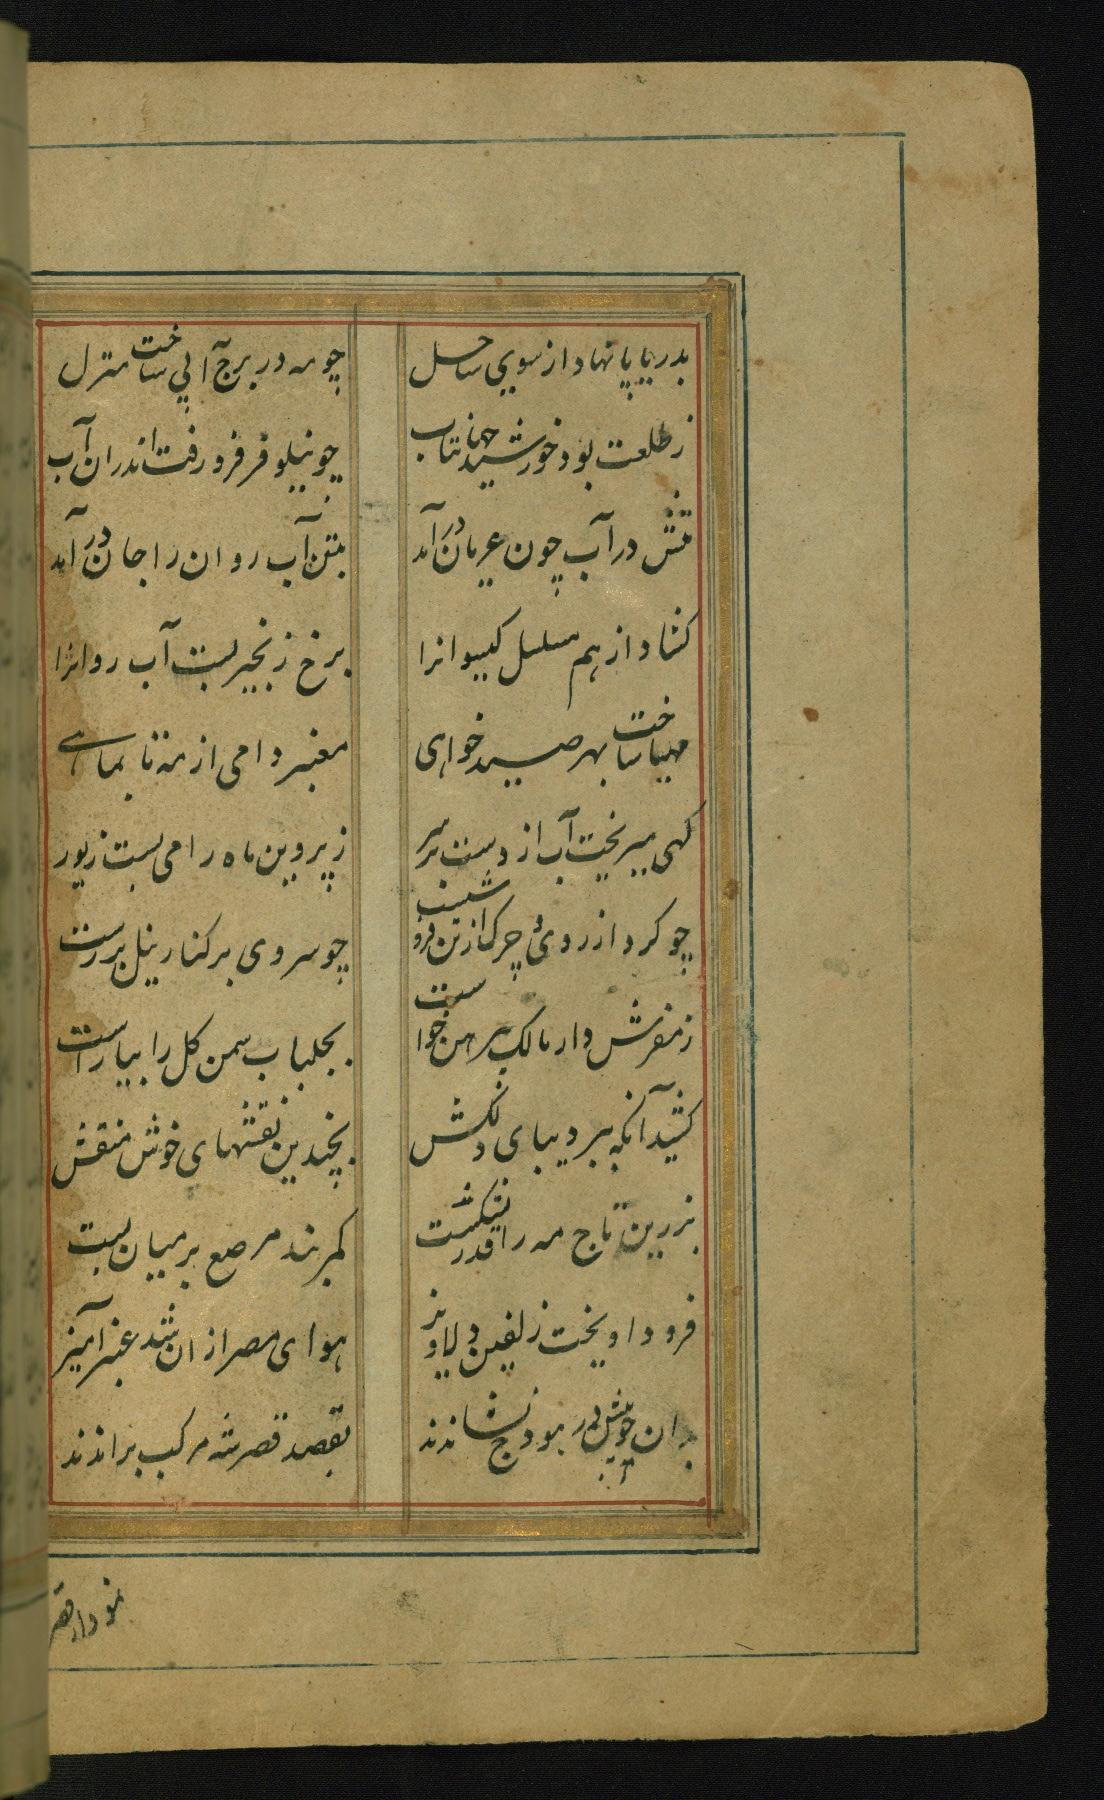 بدریا پا نهاد از سوی ساحل
چو مه در برج آبی ساخت منزل
ز طلعت بود خورشید جهانتاب
چو نیلوفر فرو رفت اندران آب
تنش در آب چون عریان درآمد
بتن آب روان را جان درآمد
کشاد از هم مسلسل کیسوانرا
برخ زنجیر بست آب روانرا
مهیا ساخت بهر صید خواهی
معنبر دامی از مه تا بماهی
کهی میریخت آب از دست بر سر
ز پروین ماه را می بست زیور
چو کرد از روی و چرک از تن فرو شست
چو سروی بر کنار نیل بر رست
ز مفرش دار مالک پیرهن خواست
بجلباب سمن کل را بیاراست
کشید آنکه ببر دیبای دلکش
بچندین نقشهای خوش منقش
بزرین تاج مه را قدر بشکست
کمربند مرصع بر میان بست
فرود اویخت زلفین دلاویز
هوای مصر از ان شد عنبرآمیز
بدان خوبیش در هودج نشاندند
بقصد قصر شه مرکب براندند
نمودار قصر